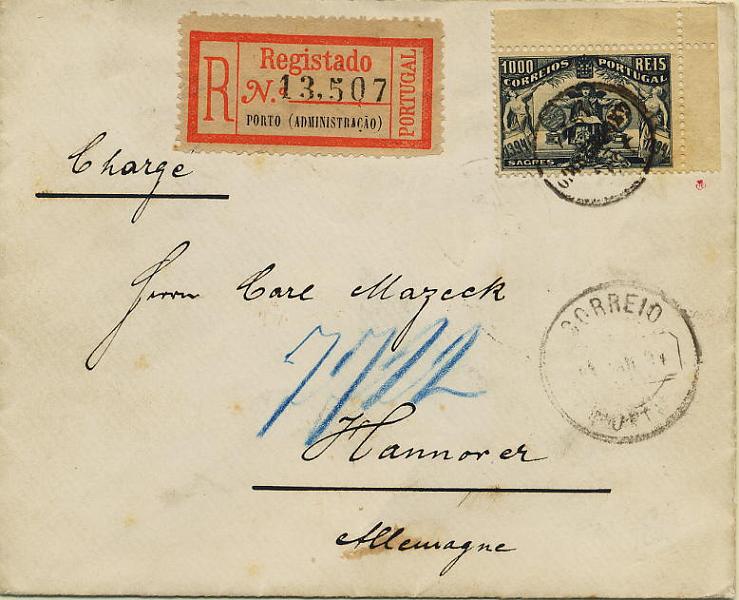 R
Registado
N.º 13.507
PORTO (ADMINISTRAÇÃO)
PORTUGAL
1000 REIS
CORREIOS PORTUGAL
1394 1894
SAGRES
Charge
Herrn Carl Mazeck
7722
Hannover
Allemagne
CORREIO
PORTO